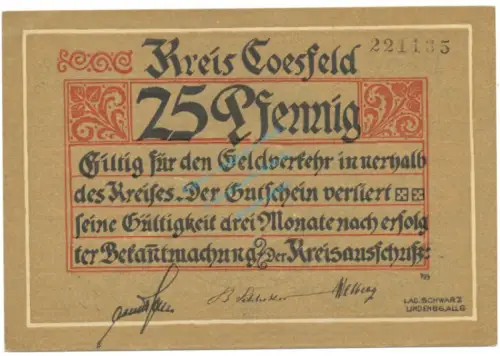 Kreis Coesfeld
221135
25 Pfennig
Giltig für den Geldverkehr in nerhalb
des Kreises. Der Gutschein verliert
seine Gültigkeit drei Monate nach erfolg
ter Bekañtmachung. Der Kreisausschuß:
LAG. SCHWARZ
LINDENBG, ALLG